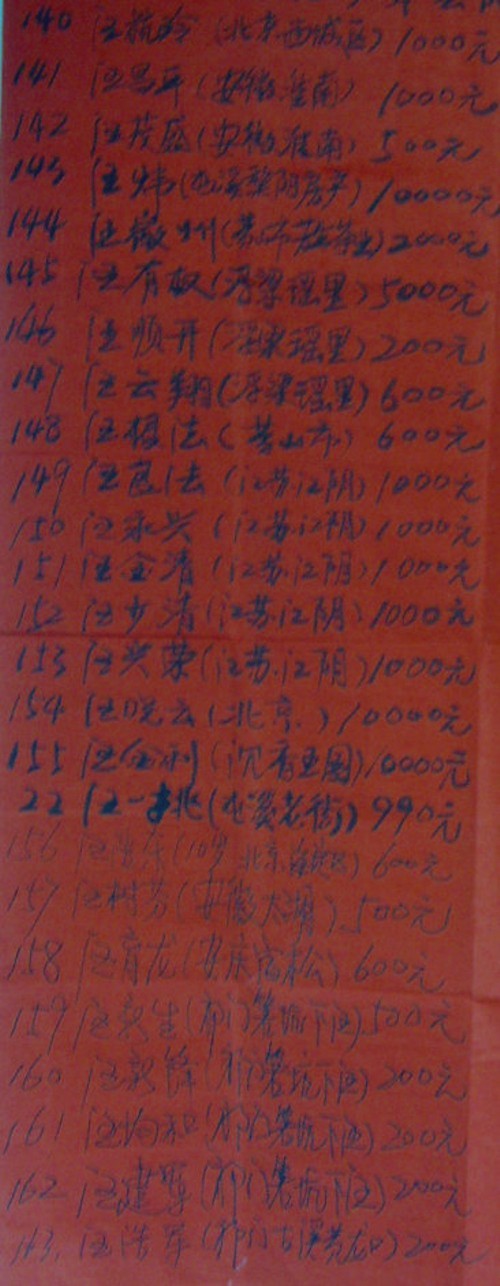 140 汪 (北京西城区) 1000元
141 汪昌平 (安徽淮南) 1000元
142 汪茂盛 (安徽淮南) 500元
143 汪炜 (屯溪黎阳) 10000元
144 汪徽州 2000元
145 汪有权 (浮梁瑶里) 5000元
146 汪顺开 (浮梁瑶里) 200元
147 汪云翔 (浮梁瑶里) 600元
148 汪根法 (黄山市) 600元
149 汪良法 (江苏江阴) 1000元
150 汪永兴 (江苏江阴) 1000元
151 汪金清 (江苏江阴) 1000元
152 汪少清 (江苏江阴) 1000元
153 汪兴荣 (江苏江阴) 1000元
154 汪晓云 (北京) 10000元
155 汪金利 (沉香王国) 10000元
22 汪一挑 (屯溪老街) 990元
156 汪 (10岁 北京) 600元
157 汪树芳 (安徽太湖) 500元
158 汪育龙 (安庆宿松) 600元
159 汪新生 (祁门箬坑下汪) 500元
160 汪新锋 (祁门箬坑下汪) 200元
161 汪均和 (祁门箬坑下汪) 200元
162 汪建军 (祁门箬坑下汪) 200元
163. 汪浩军 (祁门古溪黄龙口) 200元